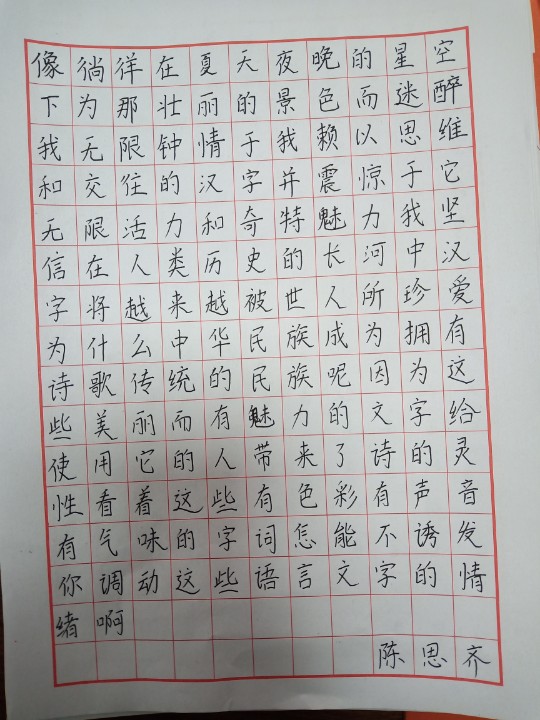 像徜徉在夏天夜晚的星空
下为那壮丽的景色而迷醉
我无限钟情于我赖以思维
和交往的汉字并震惊于它
无限活力和奇特魅力我坚
信在人类历史的长河中汉
字将越来越被世人所珍爱
为什么中华民族成为拥有
诗歌传统的民族呢因为这
些美丽而有魅力的文字给
使用它的人带来了诗的灵
性看着这些有色彩有声音
有气味的字词怎能不诱发
你调动这些语言文字的情
绪啊
陈思齐